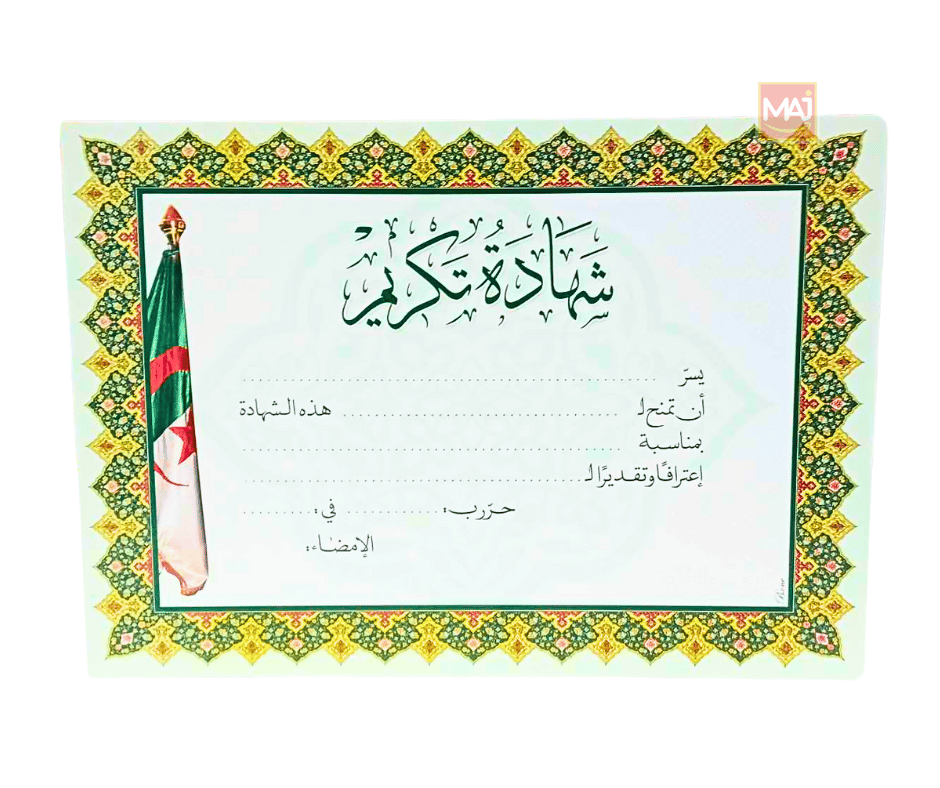 MAJ
شَهَادَةُ تَكْرِيمٍ
يسرّ ........................................................
أن تمنح لـ ........................................ هذه الشهادة
بمناسبة ........................................................
إعترافًا وتقديرًا لـ ................................................
حرّر ب: .................. في: .............
الإمضاء: